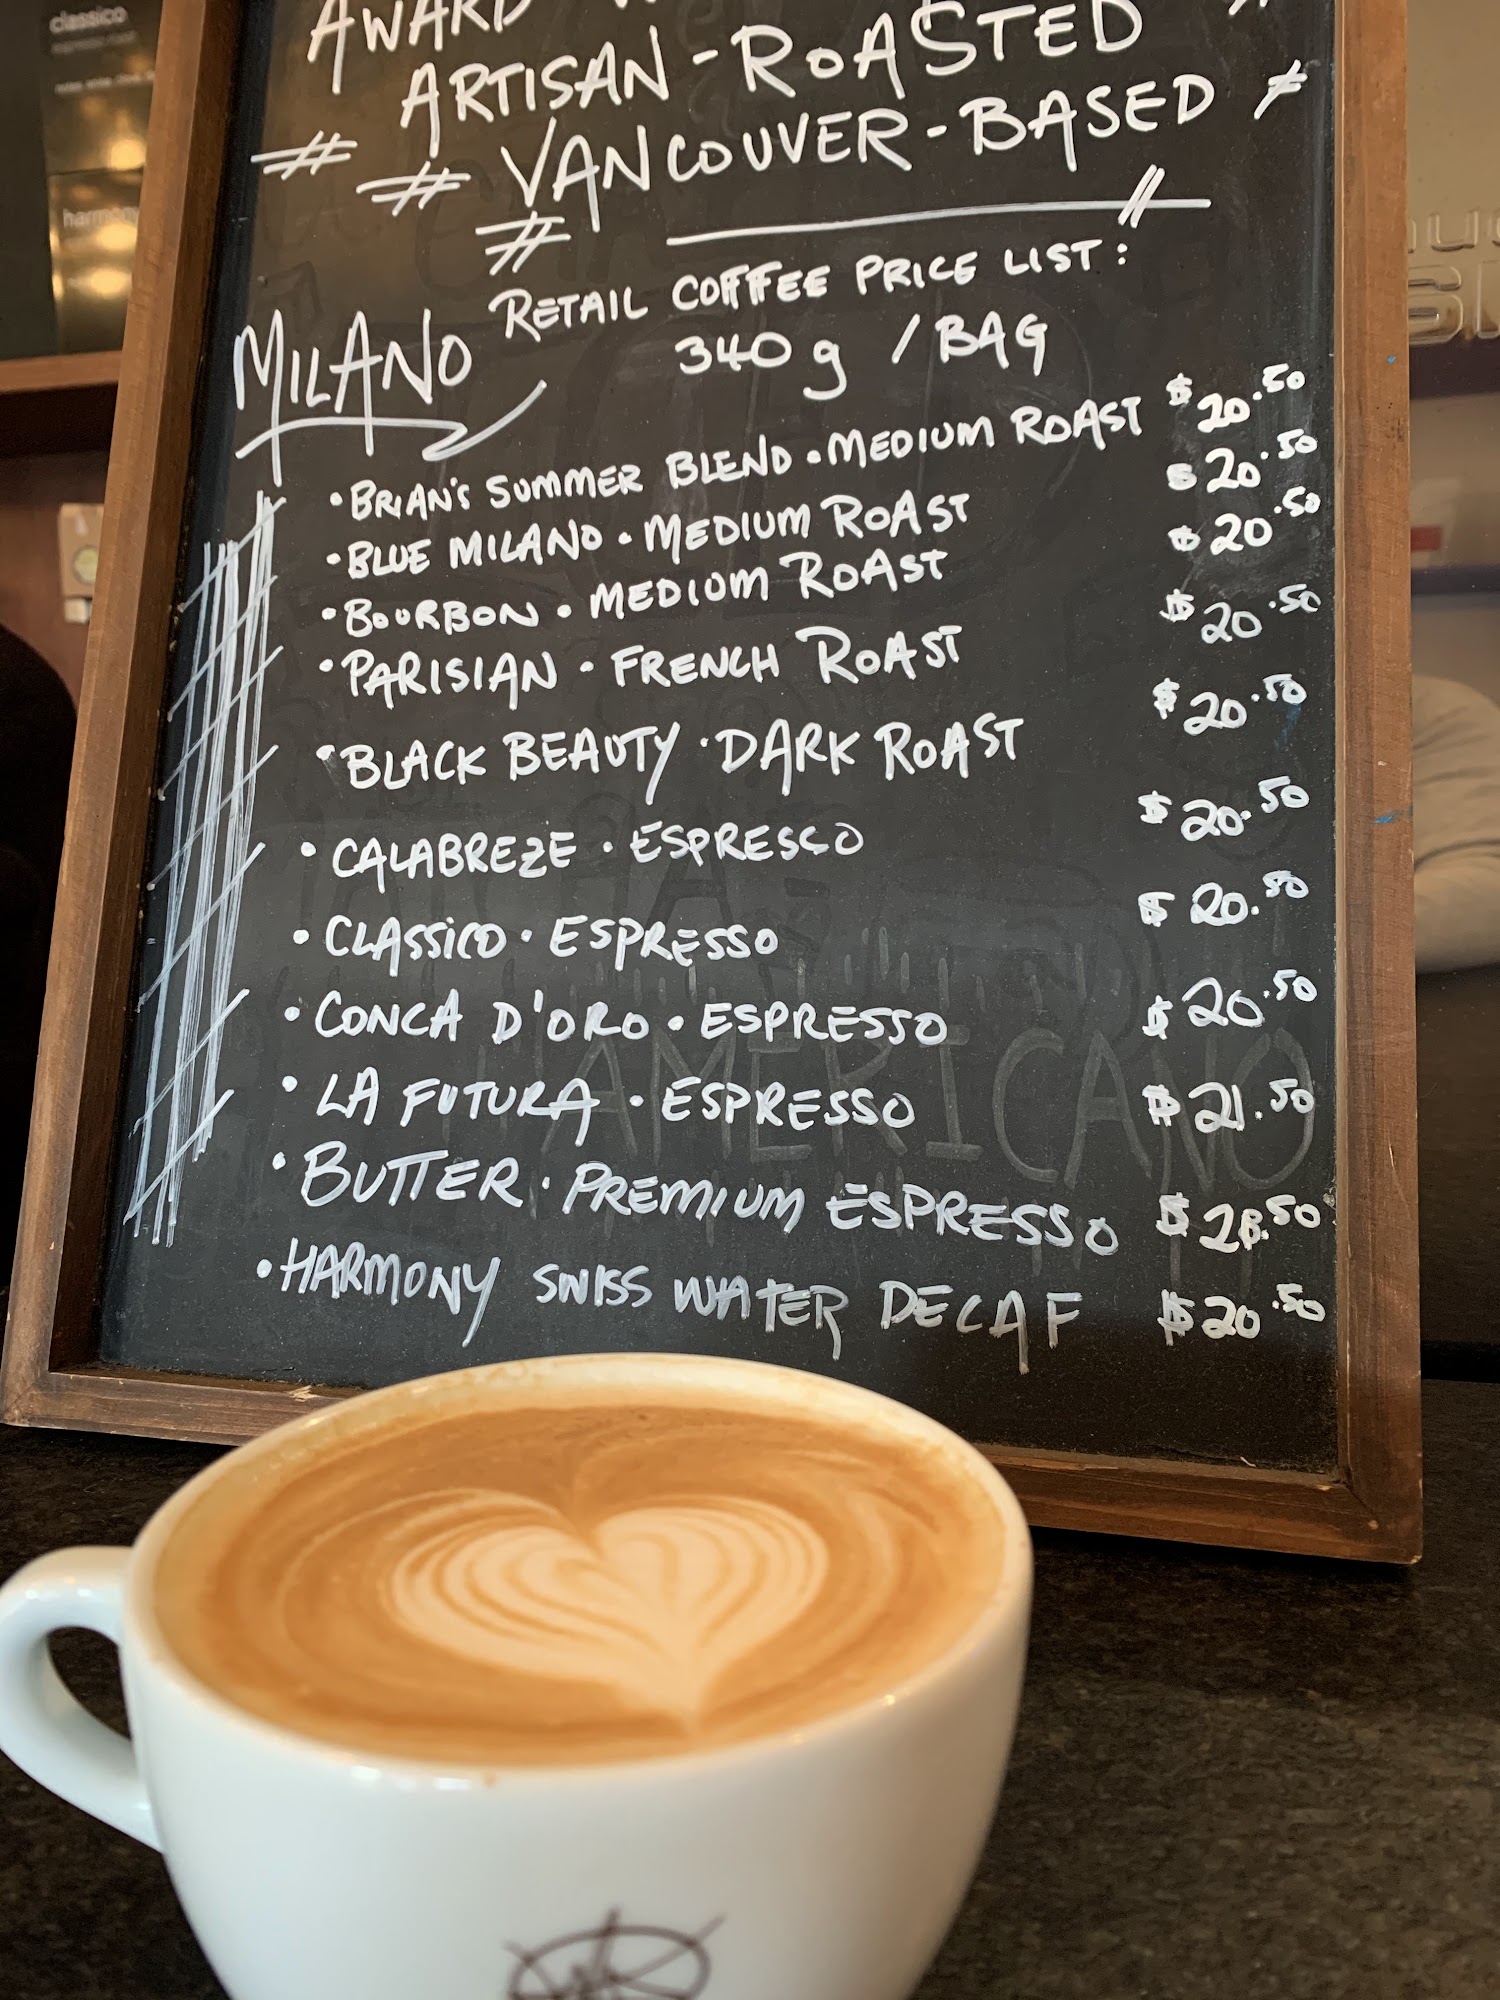 classico
harmony
AWARD
ARTISAN-ROASTED
# # VANCOUVER-BASED #
#
MILANO
RETAIL COFFEE PRICE LIST:
340g /BAG
• BRIAN'S SUMMER BLEND • MEDIUM ROAST $20.50
• BLUE MILANO • MEDIUM ROAST $20.50
• BOURBON • MEDIUM ROAST $20.50
• PARISIAN • FRENCH ROAST $20.50
• BLACK BEAUTY • DARK ROAST $20.50
• CALABREZE • ESPRESSO $20.50
• CLASSICO • ESPRESSO $20.50
• CONCA D'ORO • ESPRESSO $20.50
• LA FUTURA • ESPRESSO $21.50
• BUTTER • PREMIUM ESPRESSO $28.50
• HARMONY SWISS WATER DECAF $20.50
AMERICANO